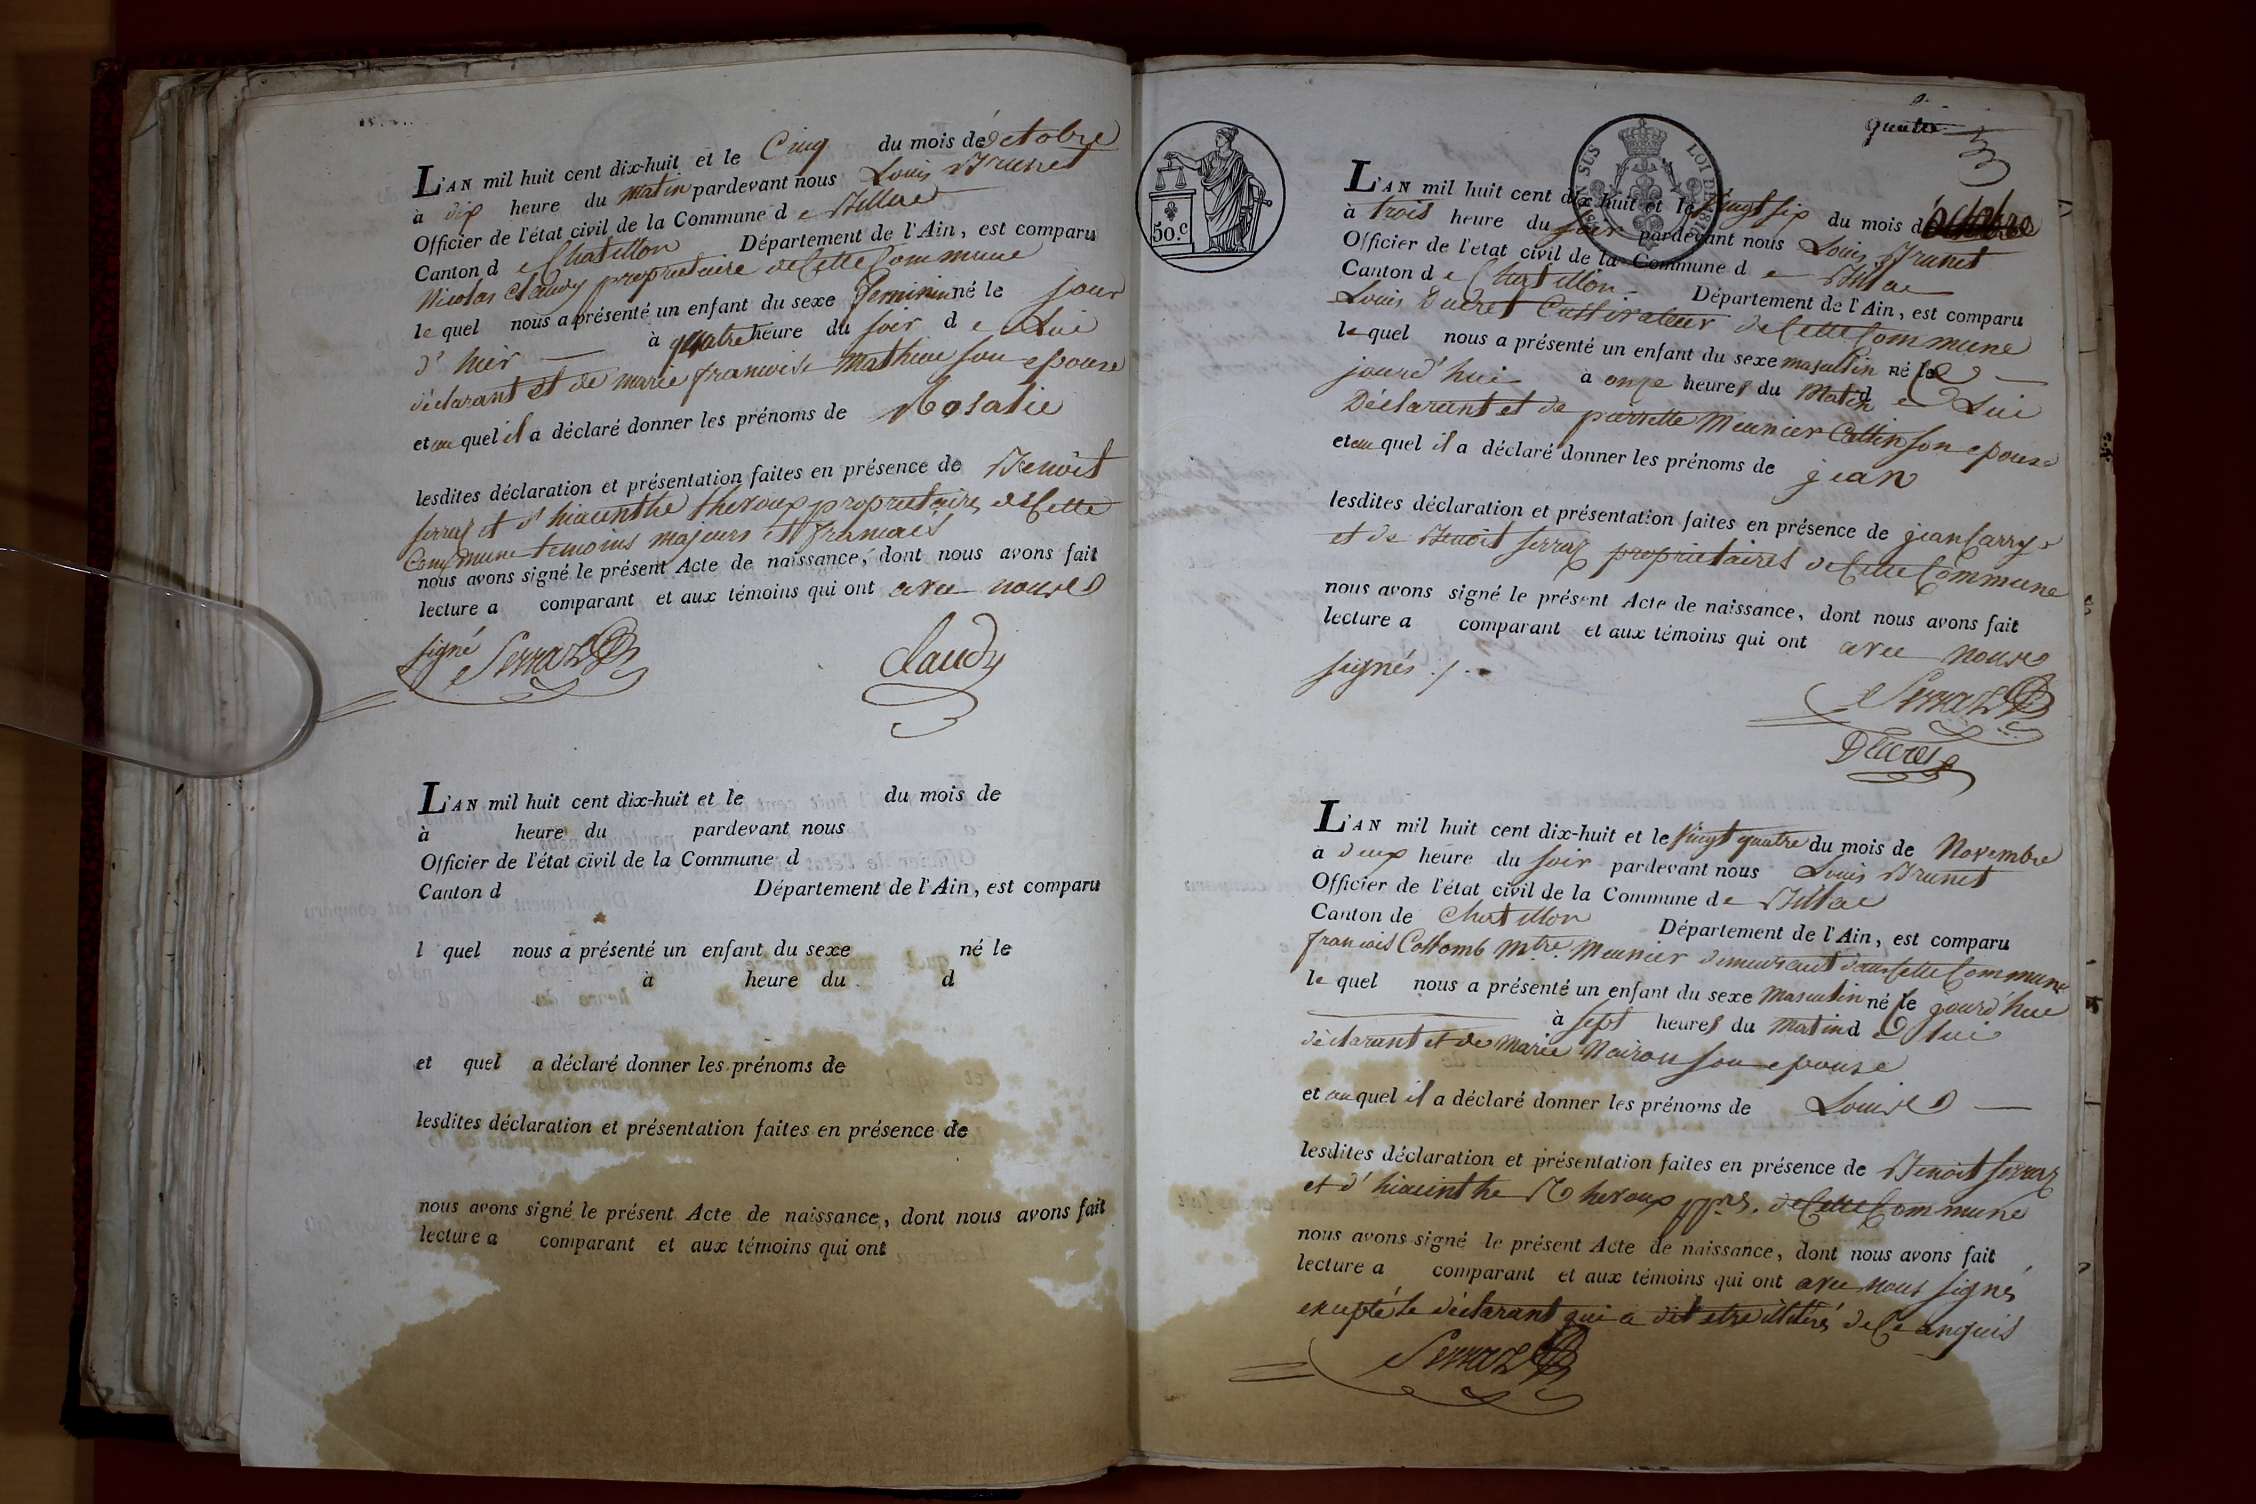 L'AN mil huit cent dix-huit et le Cinq du mois de octobre
à dix heure du matin pardevant nous Louis Brunet
Officier de l'état civil de la Commune de Billiac
Canton de Chatillon Département de l'Ain, est comparu
Nicolas Claudy proprietaire de Cette Commune
le quel nous a présenté un enfant du sexe feminin né le jour
d'hier à quatre heure du soir de Lui
déclarant et de marie francoise Mathieu son epouse
et au quel il a déclaré donner les prénoms de Rosalie
lesdites déclaration et présentation faites en présence de Benoit
serraz et d'hiacinthe theroux proprietaires de Cette
Commune temoins majeurs et francais
nous avons signé le présent Acte de naissance, dont nous avons fait
lecture a comparant et aux témoins qui ont avec nous
signé
Serraz Claudy
L'AN mil huit cent dix-huit et le du mois de
à heure du pardevant nous
Officier de l'état civil de la Commune d
Canton d Département de l'Ain, est comparu
l quel nous a présenté un enfant du sexe né le
à heure du d
et quel a déclaré donner les prénoms de
lesdites déclaration et présentation faites en présence de
nous avons signé le présent Acte de naissance, dont nous avons fait
lecture a comparant et aux témoins qui ont
50.c
SUS LOI DE 1816
L'AN mil huit cent dix-huit et le Vingt six du mois d'Octobre
à trois heure du soir pardevant nous Louis Brunet
Officier de l'etat civil de la Commune de Billiac
Canton de Chatillon Département de l'Ain, est comparu
Louis Ducret Cultivateur de Cette Commune
le quel nous a présenté un enfant du sexe masculin né le
jourd'hui à onze heures du Matin de Lui
Déclarant et de pierrette Meunier Cattin son epouse
et au quel il a déclaré donner les prénoms de jean
lesdites déclaration et présentation faites en présence de jean Carry
et de Benoit serraz proprietaires de Cette Commune
nous avons signé le présent Acte de naissance, dont nous avons fait
lecture a comparant et aux témoins qui ont avec nous
signés ./.
Serraz
Ducret
L'AN mil huit cent dix-huit et le Vingt quatre du mois de Novembre
à deux heure du soir pardevant nous Louis Brunet
Officier de l'état civil de la Commune de Billiac
Canton de Chatillon Département de l'Ain, est comparu
francois Collomb mtre. Meunier demeurant dans Cette Commune
le quel nous a présenté un enfant du sexe Masculin né le jourd'hui
à sept heures du Matin de lui
déclarant et de Marie Nairon son epouse
et au quel il a déclaré donner les prénoms de Louis
lesdites déclaration et présentation faites en présence de Benoit serraz
et d'hiacinthe Theroux pprs. de Cette Commune
nous avons signé le présent Acte de naissance, dont nous avons fait
lecture a comparant et aux témoins qui ont avec nous signés
excepté le déclarant qui a dit etre illitéré de Ce enquis
Serraz